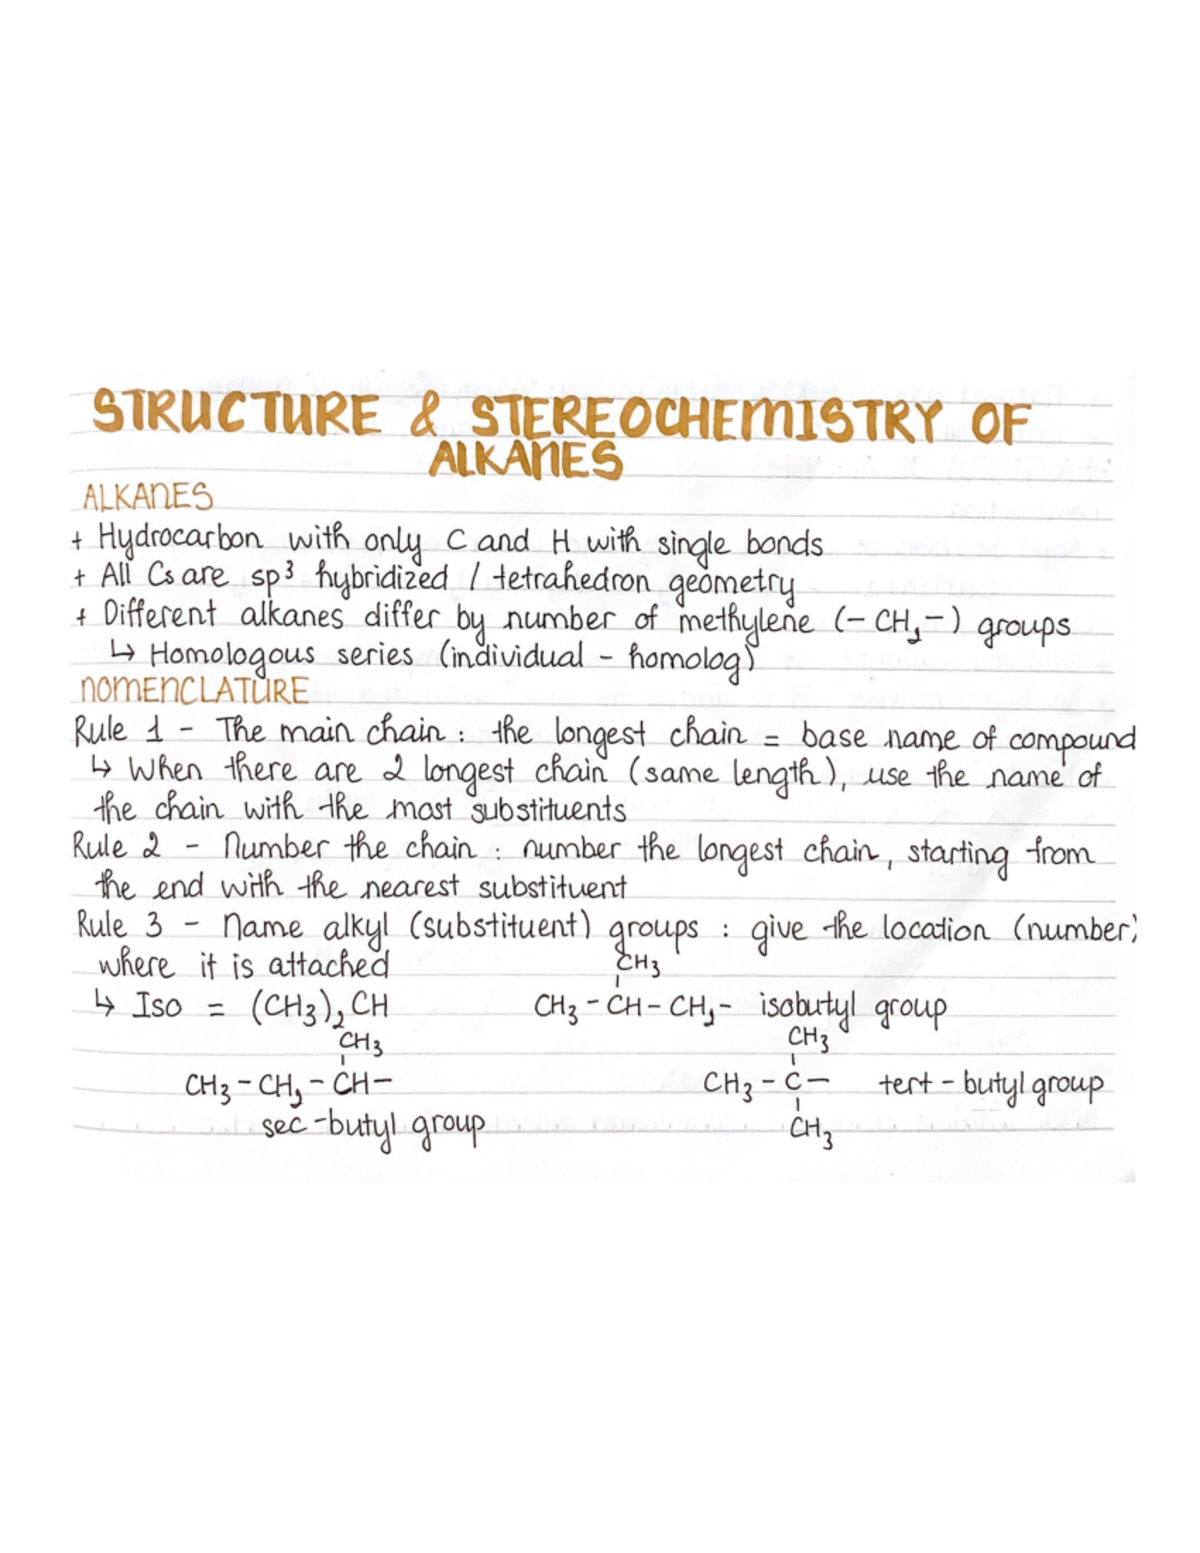 STRUCTURE & STEREOCHEMISTRY OF
ALKANES
ALKANES
+ Hydrocarbon with only C and H with single bonds
+ All Cs are sp³ hybridized / tetrahedron geometry
+ Different alkanes differ by number of methylene (- CH₂-) groups
↳ Homologous series (individual - homolog)
NOMENCLATURE
Rule 1 - The main chain : the longest chain = base name of compound
↳ When there are 2 longest chain (same length), use the name of
the chain with the most substituents
Rule 2 - Number the chain : number the longest chain, starting from
the end with the nearest substituent
Rule 3 - Name alkyl (substituent) groups : give the location (number)
where it is attached
CH₃
↳ Iso = (CH₃)₂CH CH₃ - CH - CH₂ - isobutyl group
CH₃ CH₃
CH₃ - CH₂ - CH - CH₃ - C - tert - butyl group
sec - butyl group CH₃